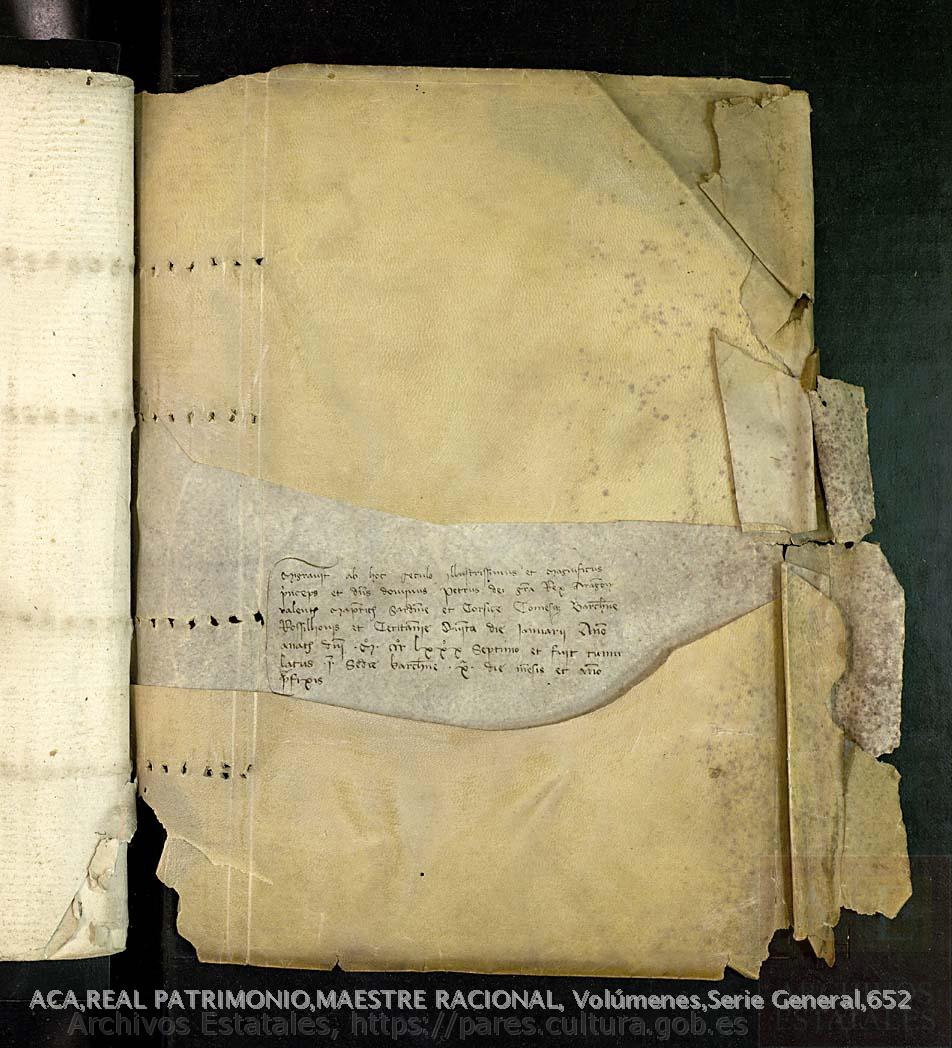 Migravit ab hoc seculo illustrissimus et magnificus
princeps et dns dominus Petrus dei gra Rex Aragon
valent Maioric Sardinie et Corsice Comesq Barchne
Rossilionis et Ceritanie Quinta die Januarii Anno
a nat dni .M. CCC Lxxx Septimo et fuit tumu
latus .i. Sede barchne . x . die mensis et Anno
pfixis
ACA,REAL PATRIMONIO,MAESTRE RACIONAL, Volúmenes,Serie General,652
Archivos Estatales, https://pares.cultura.gob.es